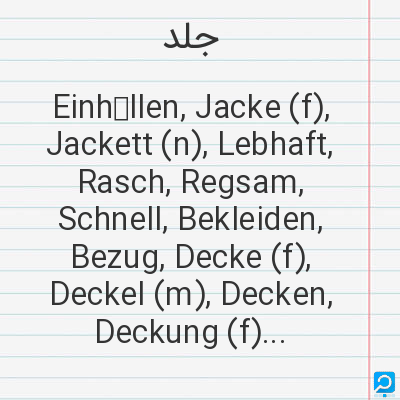 جلد
Einh▯llen, Jacke (f),
Jackett (n), Lebhaft,
Rasch, Regsam,
Schnell, Bekleiden,
Bezug, Decke (f),
Deckel (m), Decken,
Deckung (f)...